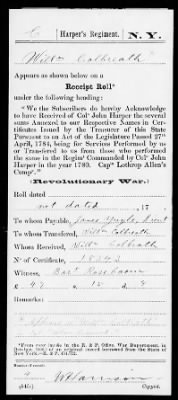 C | Harper's Regiment. | N. Y.
Willm Colbreath
Appears as shown below on a
Receipt Roll*
under the following heading:
"We the Subscribers do hereby Acknowledge
to have Received of Colº John Harper the several
sums Annexed to our Respective Names in Cer-
tificates Issued by the Treasurer of this State
Pursuant to an Act of the Legislature Passed 27th
April, 1784, being for Services Performed by us
or Transfered to us from those who performed
the same in the Regimt Commanded by Colº John
Harper in the year 1780. Capt Lothrop Allen's
Compy."
(Revolutionary War.)
Roll dated
not dated, 17
To whom Payable, James
To whom Transfered, Willm Colbreath
Whom Received, Willm Colbreath
Nº of Certificate,
Witness, Bart Rosebaum
£ 47 . 15 .
Remarks:
*From over books in the R. & P. Office War Department,
original roll borrowed from the State of
New York.—R. & P.
W Harrison
Copyist.